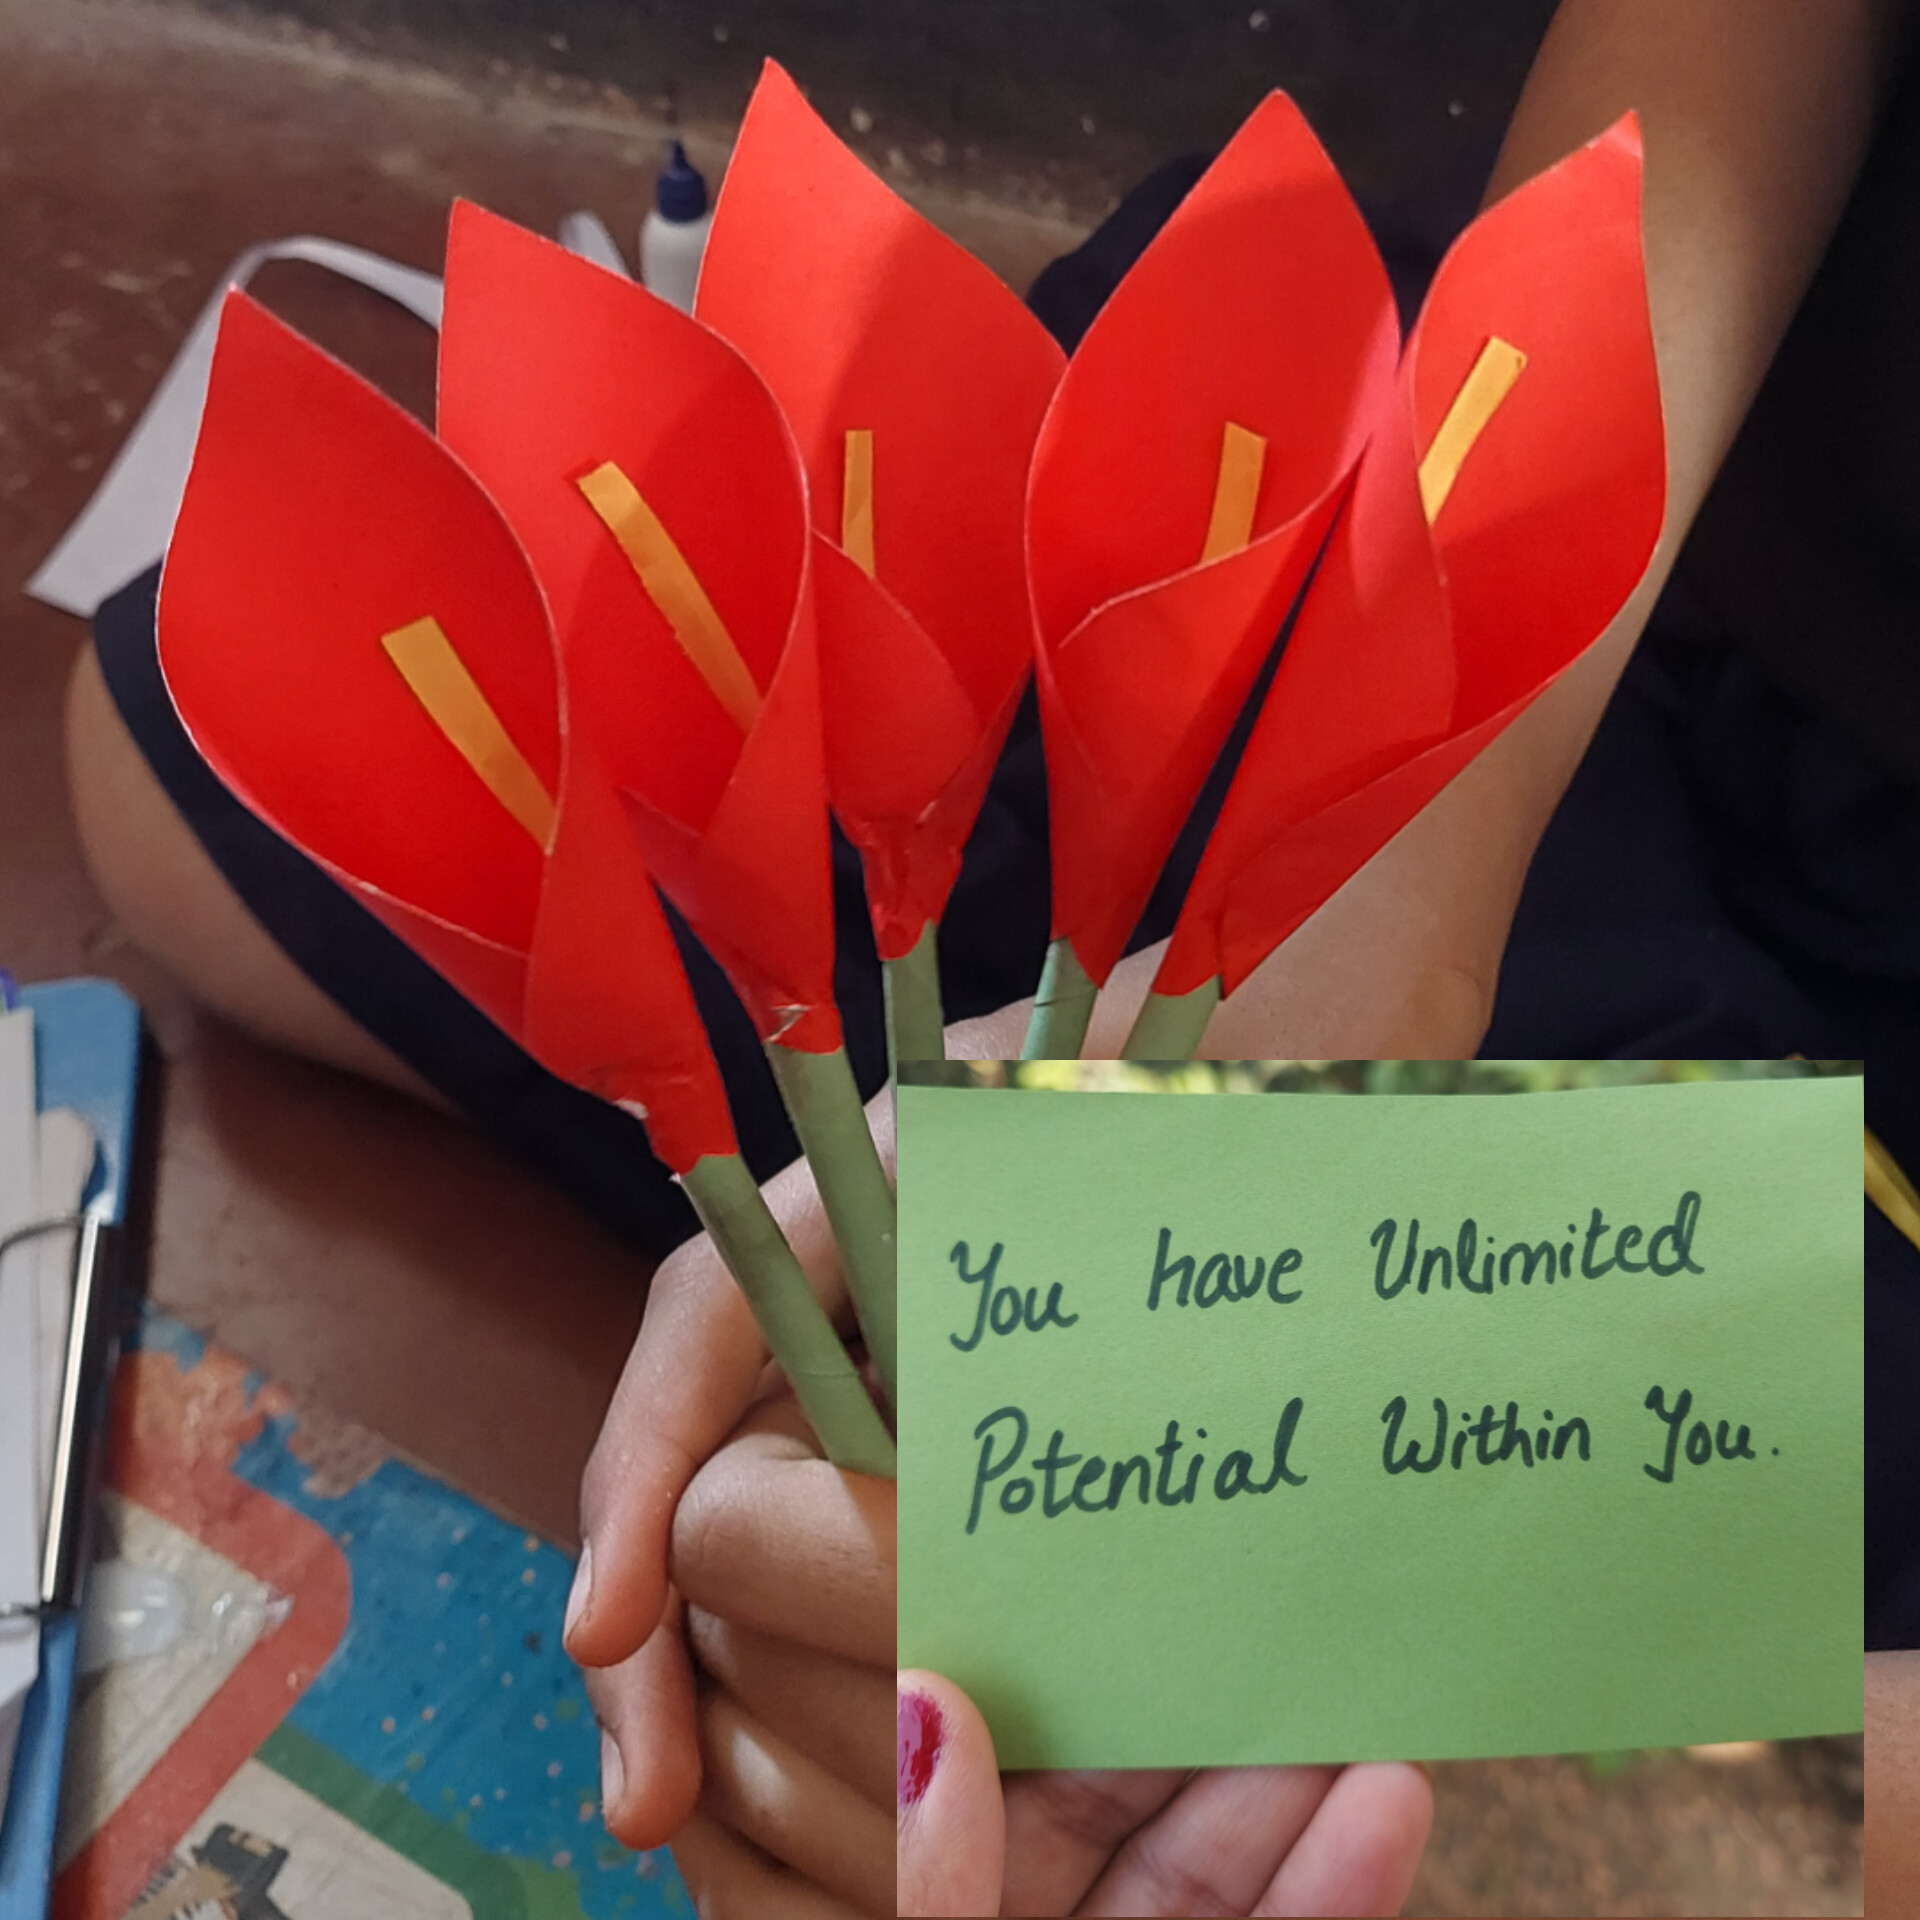 You have Unlimited
Potential Within You.